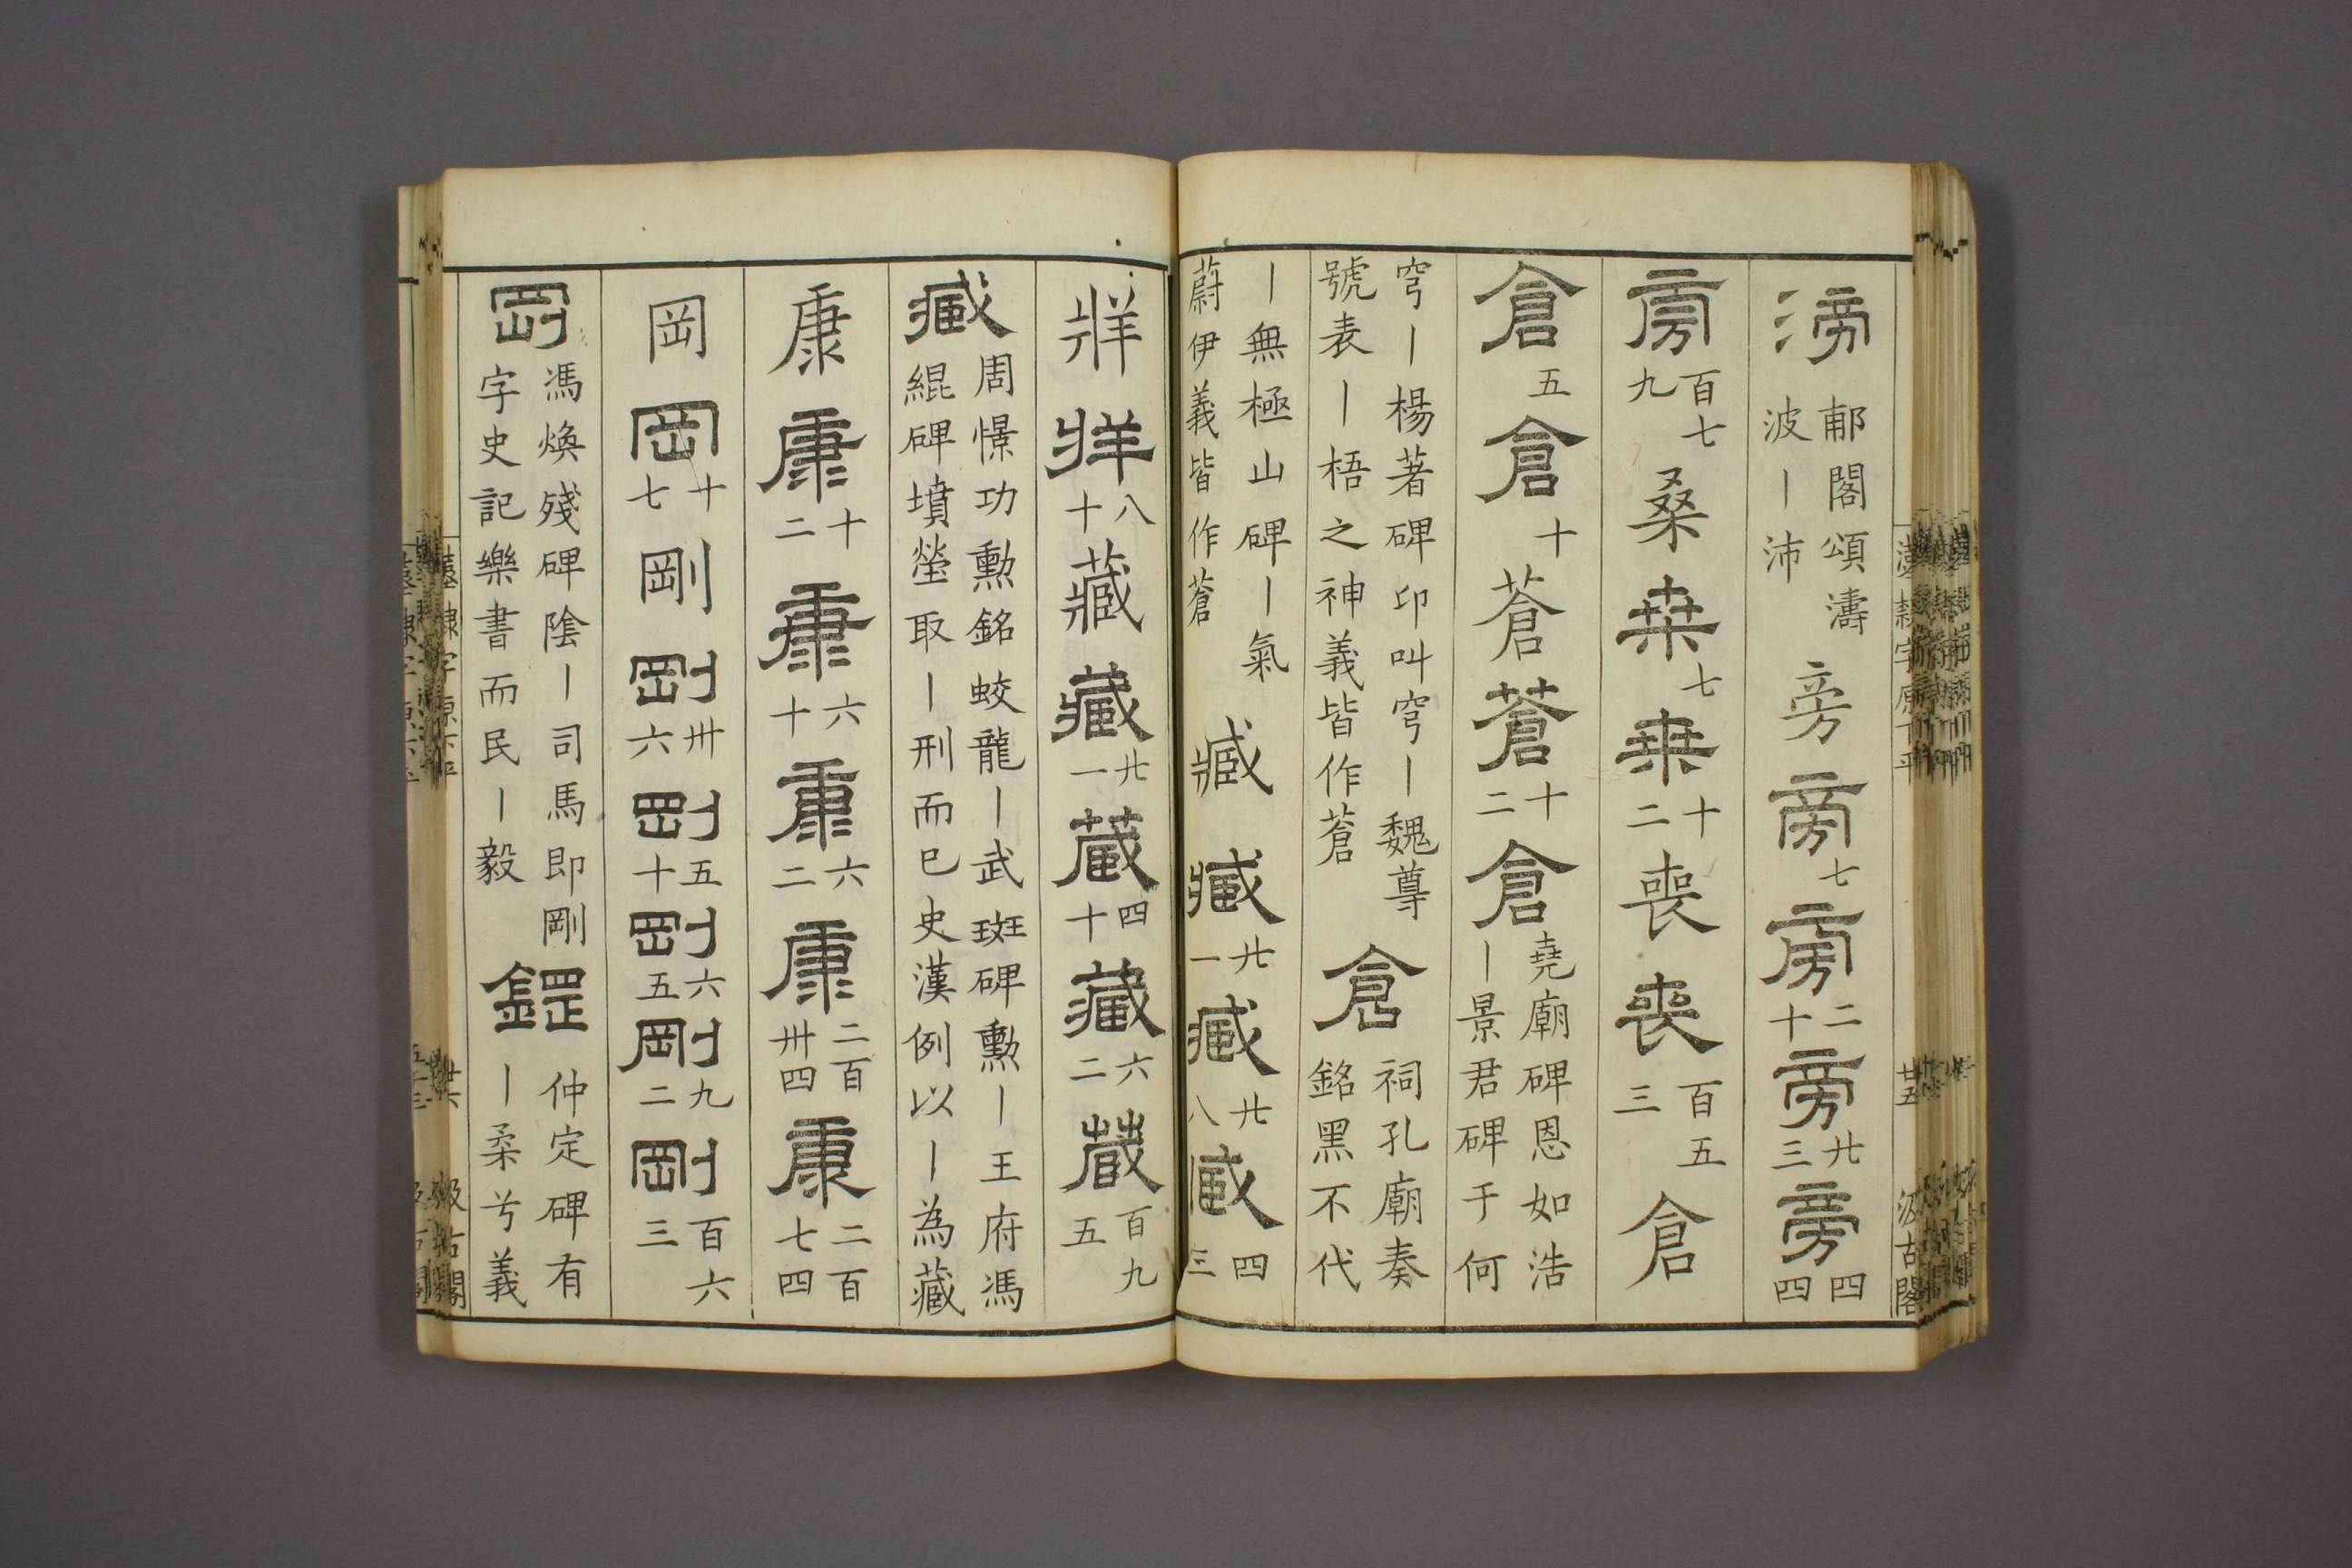 滂 郙閣頌濤波丨沛 旁 㫄 七 㫄 二十 㫄 廿三 旁 四四
㫄 百七九 桑 桒 七 桒 十二 喪 喪 百五三 倉
倉 五 倉 十 蒼 蒼 十二 倉 堯廟碑恩如浩丨景君碑于何
穹丨楊著碑印叫穹丨魏尊號表丨梧之神義皆作蒼 倉 祠孔廟奏銘黑不代
丨無極山碑丨氣蔚伊義皆作蒼 臧 臧 廿一 臧 廿八 臧 四三
牂 牂 八十 藏 藏 廿一 蔵 四十 藏 六二 蔵 百九五
臧 周憬功勲銘蛟龍丨武斑碑勲丨王府馮緄碑墳塋取丨刑而已史漢例以丨為藏
康 康 十二 康 六十 康 六二 康 二百卅四 康 二百七四
岡 岡 十七 剛 剛 卅六 剛 五十 剛 六五 剛 九二 剛 百六三
馮煥殘碑陰丨司馬即剛字史記樂書而民丨毅 仲定碑有丨柔兮義
漢隸字原下平 廿五 汲古閣